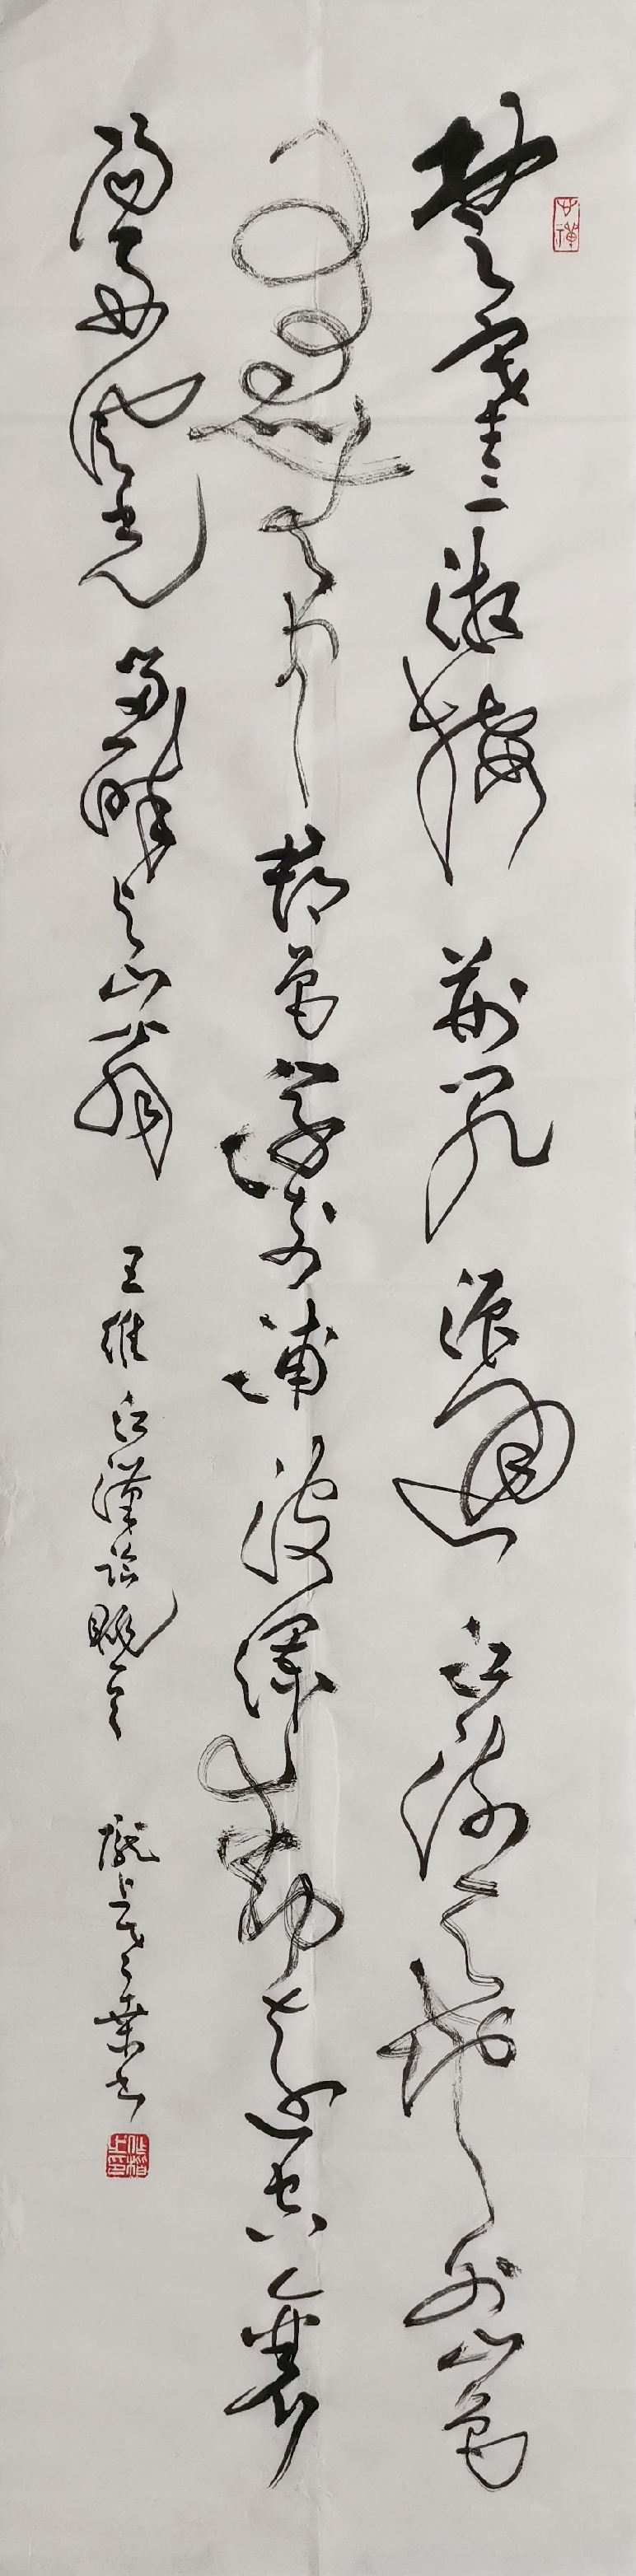 楚塞三湘接荆门九派通江流天地外山色
有无中郡邑浮前浦波澜动远空襄
阳好风光留醉与山翁 王维江漢临眺 陇上